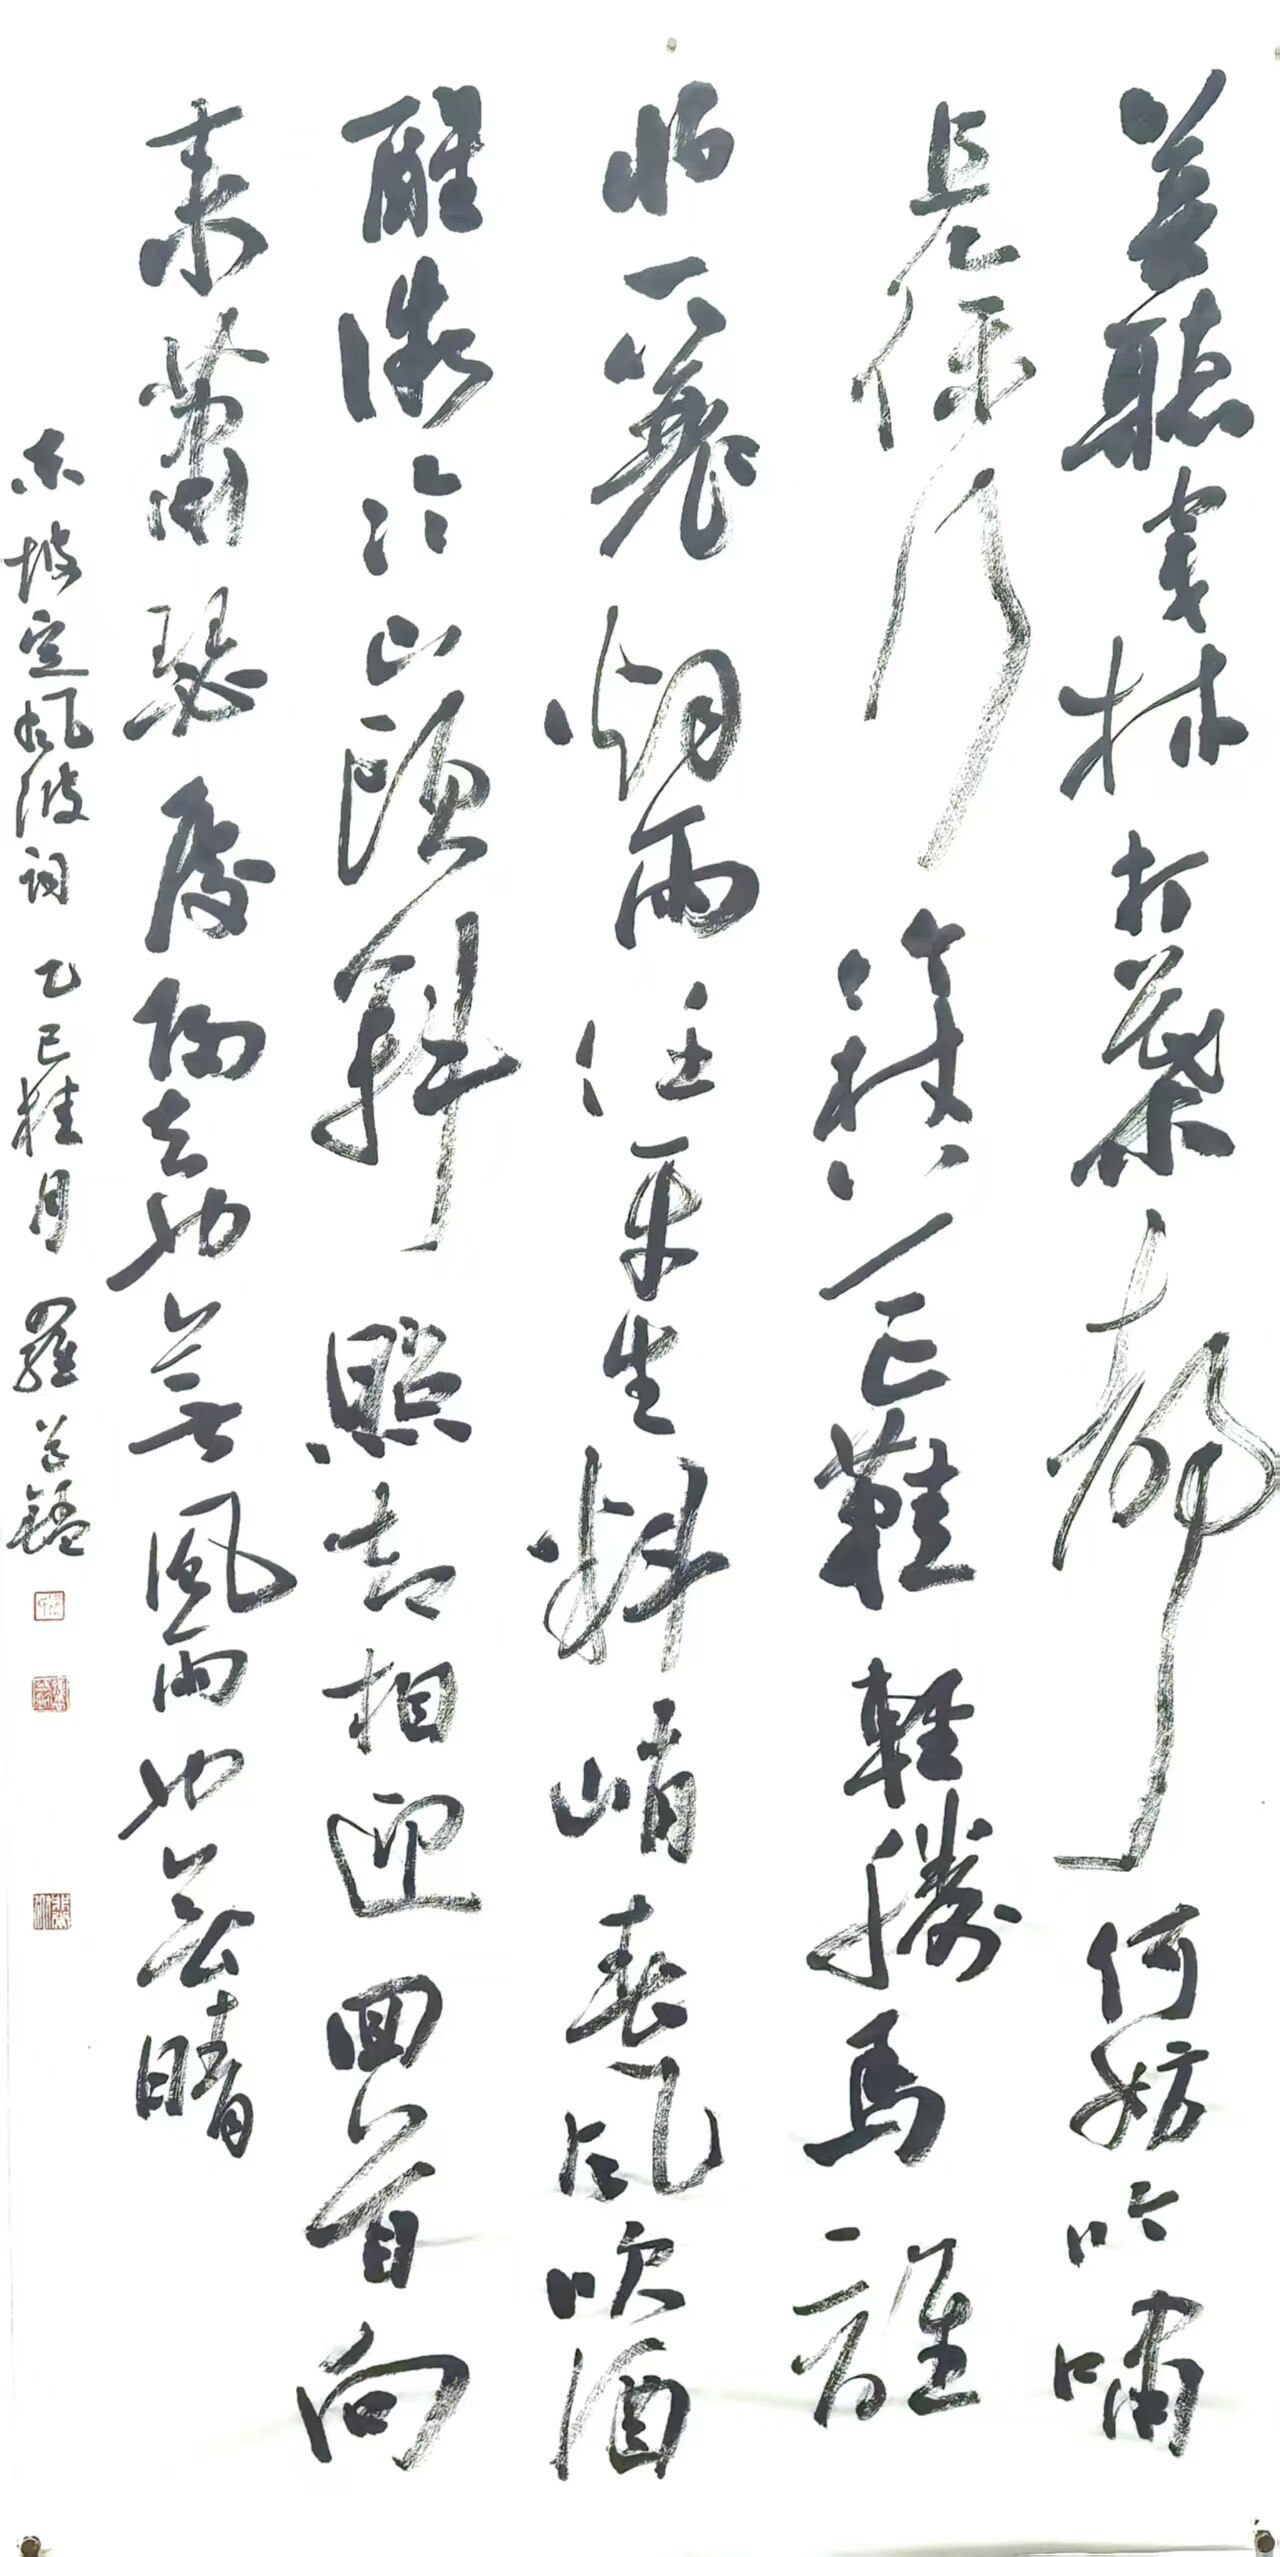 莫聽穿林打葉聲何妨吟嘯
且徐行竹杖芒鞋輕勝馬誰
怕一蓑烟雨任平生料峭春風吹酒
醒微冷山頭斜照却相迎回首向
來蕭瑟處歸去也無風雨也無晴
東坡定風波詞 乙巳桂月 羅